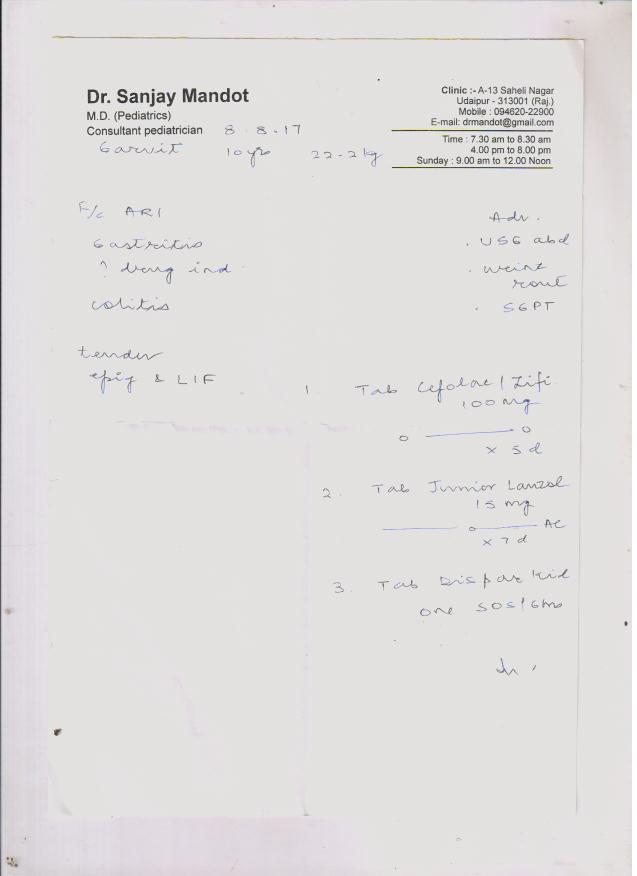 Dr. Sanjay Mandot
M.D. (Pediatrics)
Consultant pediatrician 8.8.17
Garvit 10 yrs 22.2 kg
Clinic :- A-13 Saheli Nagar
Udaipur - 313001 (Raj.)
Mobile : 094620-22900
E-mail: drmandot@gmail.com
Time : 7.30 am to 8.30 am
4.00 pm to 8.00 pm
Sunday : 9.00 am to 12.00 Noon
F/c ARI
Gastritis
? drug ind
colitis
tender
epig & LIF
Adv.
. USG abd
. urine
rout
. SGPT
1. Tab Cefolac / Zifi
100 mg
0 0
x 5 d
2. Tab Junior Lanzol
15 mg
0 AC
x 7 d
3. Tab Dispar Kid
one SOS/6hrs